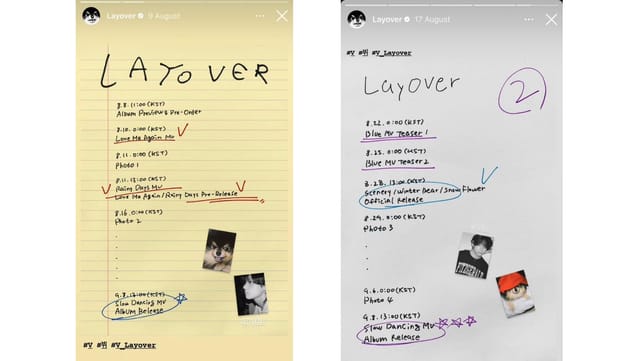 Layover 9 August
LAYOVER
8.8. 11:00 (KST)
Album Preview & Pre-Order
8.10. 0:00 (KST)
Love Me Again MV
8.11. 0:00 (KST)
Photo 1
8.11. 13:00 (KST)
Rainy Days MV
Love Me Again/Rainy Days Pre-Release
8.16. 0:00 (KST)
Photo 2
9.8. 13:00 (KST)
Slow Dancing MV
Album Release
#V #뷔 #V_Layover
Layover 17 August
#V #뷔 #V_Layover
Layover
2
8.22. 0:00 (KST)
Blue MV Teaser 1
8.25. 0:00 (KST)
Blue MV Teaser 2
8.28. 13:00 (KST)
Scenery/Winter Bear/Snow Flower
Official Release
8.29. 0:00 (KST)
Photo 3
9.6. 0:00 (KST)
Photo 4
9.8. 13:00 (KST)
Slow Dancing MV
Album Release